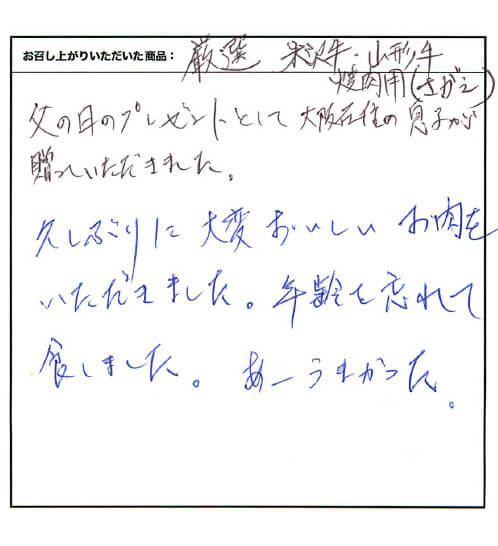 お召し上がりいただいた商品： 厳選 米沢牛・山形牛
焼肉用(さがえ)
父の日のプレゼントとして大阪在住の息子から
贈っていただきました。
久しぶりに大変おいしいお肉を
いただきました。年齢を忘れて
食しました。あーうまかった。